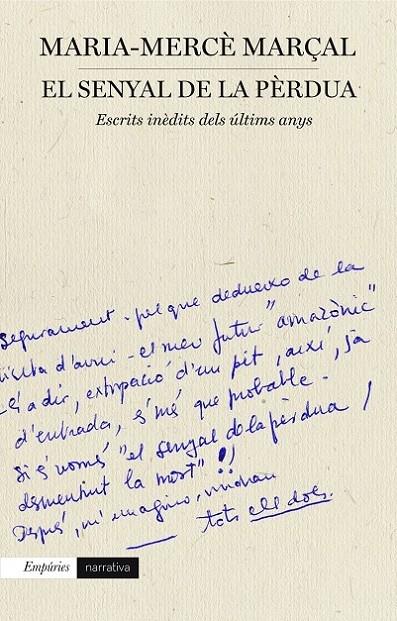 MARIA-MERCÈ MARÇAL
EL SENYAL DE LA PÈRDUA
Escrits inèdits dels últims anys
Segurament - pel que dedueixo de la
visita d'avui - el meu futur "amazònic"
- és a dir, extirpació d'un pit, així, ja
d'entrada, és més que probable.
Si és només "el senyal de la pèrdua /
desmentint la mort"!!
Després, m'imagino, vindran
tots ells dos.
Empúries narrativa